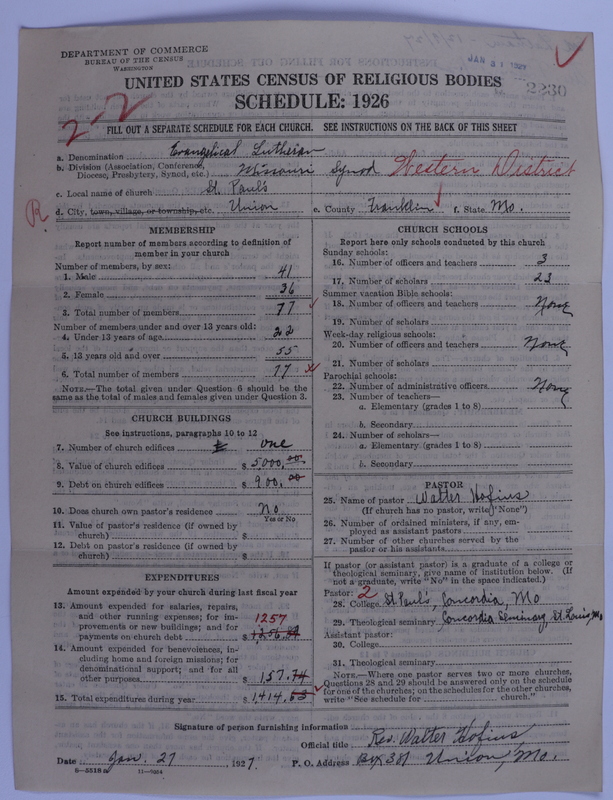 DEPARTMENT OF COMMERCE
BUREAU OF THE CENSUS
WASHINGTON
JAN 31 1927
2230
UNITED STATES CENSUS OF RELIGIOUS BODIES
SCHEDULE: 1926
2-2
FILL OUT A SEPARATE SCHEDULE FOR EACH CHURCH. SEE INSTRUCTIONS ON THE BACK OF THIS SHEET
a. Denomination Evangelical Lutheran
b. Division (Association, Conference, Diocese, Presbytery, Synod, etc.) Missouri Synod Western District
c. Local name of church St. Paul's
R
d. City, town, village, or township, etc. Union e. County Franklin f. State Mo.
MEMBERSHIP
Report number of members according to definition of
member in your church
Number of members, by sex:
1. Male 41
2. Female 36
3. Total number of members 77
Number of members under and over 13 years old:
4. Under 13 years of age 22
5. 13 years old and over 55
6. Total number of members 77
NOTE.—The total given under Question 6 should be the
same as the total of males and females given under Question 3.
CHURCH BUILDINGS
See instructions, paragraphs 10 to 12
7. Number of church edifices one
8. Value of church edifices $ 5000.00
9. Debt on church edifices $ 900.00
10. Does church own pastor's residence No
Yes or No
11. Value of pastor's residence (if owned by
church) $
12. Debt on pastor's residence (if owned by
church) $
EXPENDITURES
Amount expended by your church during last fiscal year
13. Amount expended for salaries, repairs,
and other running expenses; for im-
provements or new buildings; and for
payments on church debt $ 1257
14. Amount expended for benevolences, in-
cluding home and foreign missions; for
denominational support; and for all
other purposes $ 157.74
15. Total expenditures during year $ 1,414.63
CHURCH SCHOOLS
Report here only schools conducted by this church
Sunday schools:
16. Number of officers and teachers 3
17. Number of scholars 23
Summer vacation Bible schools:
18. Number of officers and teachers None
19. Number of scholars
Week-day religious schools:
20. Number of officers and teachers None
21. Number of scholars
Parochial schools:
22. Number of administrative officers None
23. Number of teachers—
a. Elementary (grades 1 to 8)
b. Secondary
24. Number of scholars—
a. Elementary (grades 1 to 8)
b. Secondary
PASTOR
25. Name of pastor Walter Hofius
(If church has no pastor, write "None")
26. Number of ordained ministers, if any, em-
ployed as assistant pastors
27. Number of other churches served by the
pastor or his assistants
If pastor (or assistant pastor) is a graduate of a college or
theological seminary, give name of institution below. (If
not a graduate, write "No" in the space indicated.)
Pastor: 2
28. College St. Paul's, Concordia, Mo
29. Theological seminary Concordia Seminary, St. Louis, Mo
Assistant pastor:
30. College
31. Theological seminary
NOTE.—Where one pastor serves two or more churches,
Questions 28 and 29 should be answered only on the schedule
for one of the churches; on the schedules for the other churches,
write "See schedule for church."
Signature of person furnishing information
Official title Rev. Walter Hofius
Date Jan. 27 1927. P. O. Address Box 381 Union, Mo.
8—5518a 11—9054